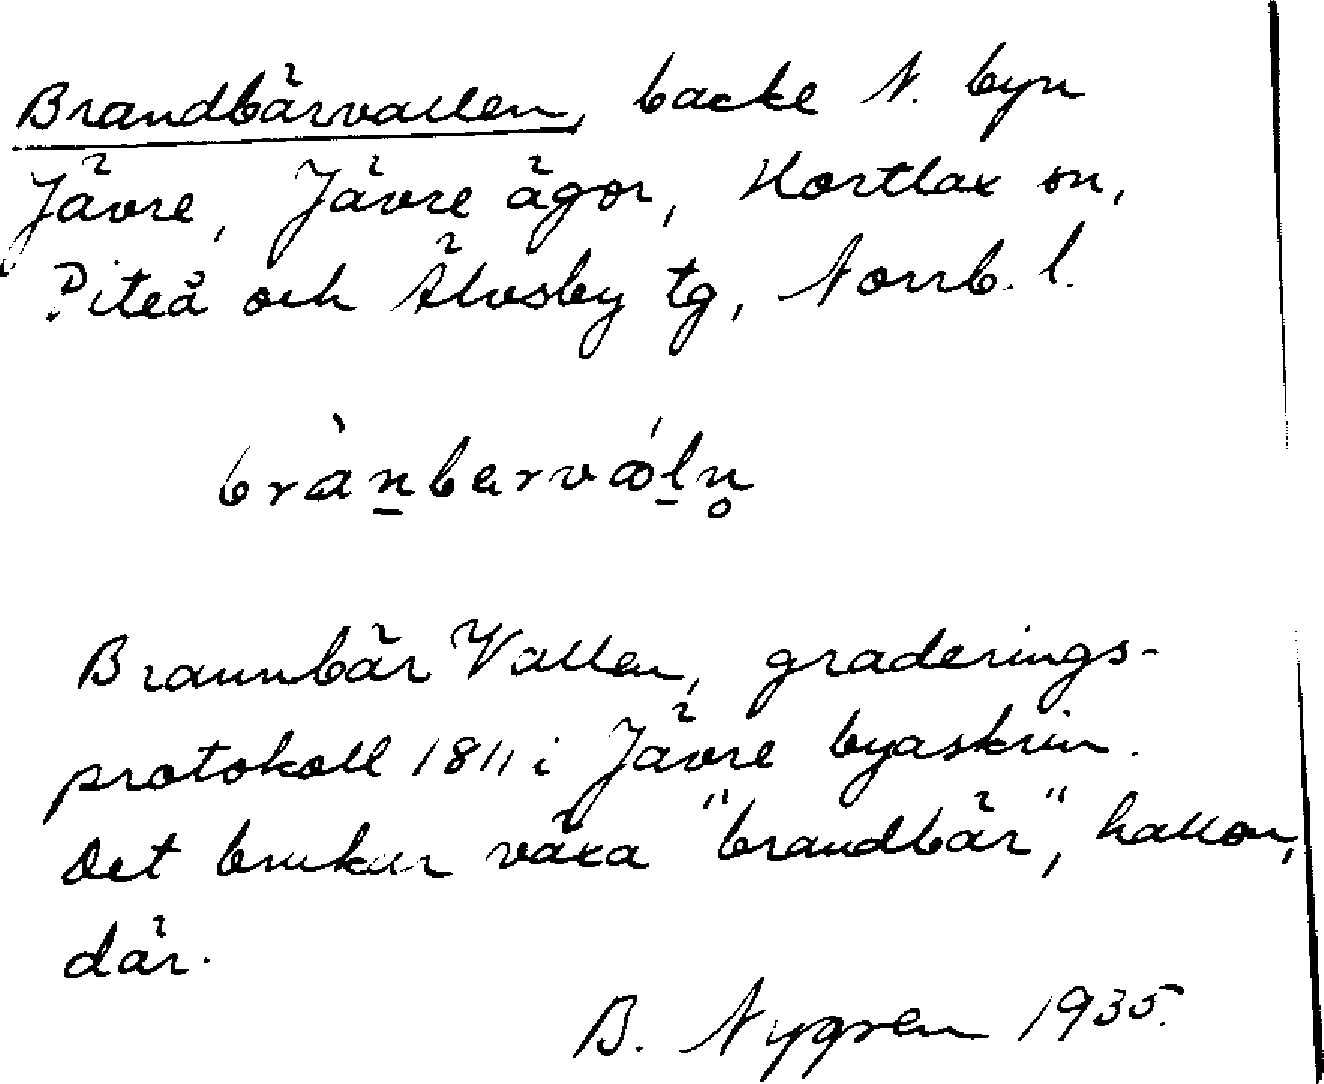 Brandbärvallen, backe N. byn
Jävre, Jävre ägor, Hortlax sn,
Piteå och Älvsby tg, Norrb. l.
bràn̲barvól̲n̥
Brannbär Vallen, graderings-
protokoll 1811 i Jävre byaskrin.
Det brukar växa "brandbär", hallon,
där.
B. Nygren 1935.